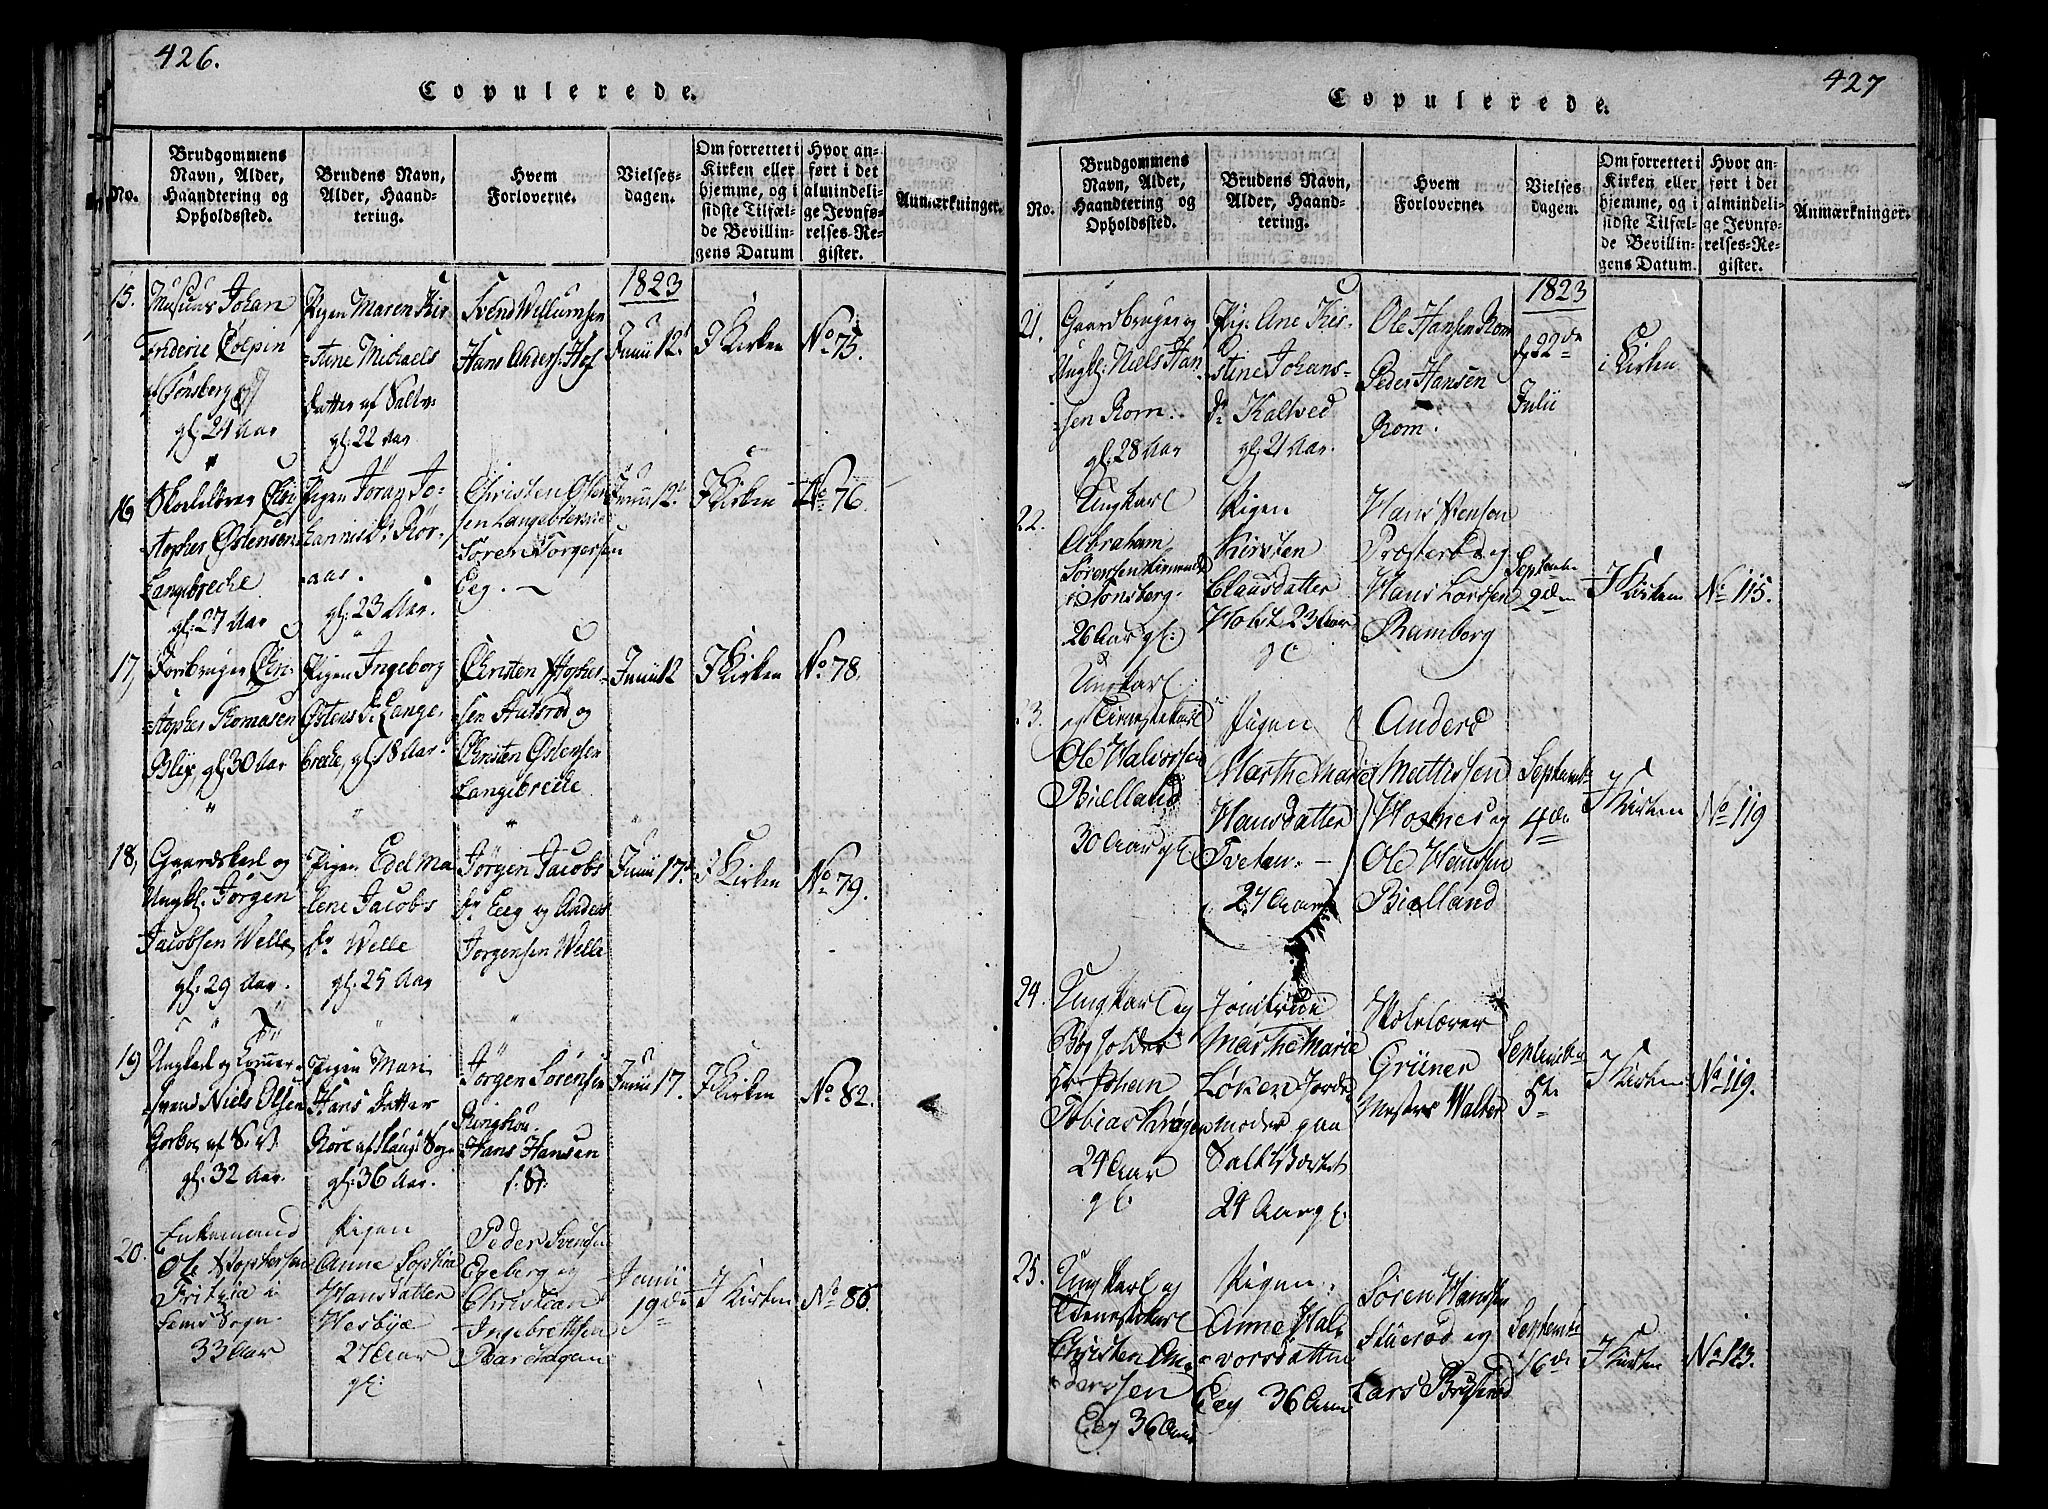 426.
Copulerede.
No.
Brudgommens
Navn, Alder,
Haandtering og
Opholdssted.
Brudens Navn,
Alder, Haand-
tering.
Hvem
Forloverne.
Vielses-
dagen.
Om forrettet i
Kirken eller
hjemme, og i
sidste Tilfæl-
de Bevillin-
gens Datum
Hvor an-
ført i det
almindeli-
ge Jevnfø-
relses-Re-
gister.
Anmærkninger.
1823
15.
Johan
Frideric Colpin
af Tønsberg
gl: 24 Aar
Pigen Maren Kir-
stine Michaels
datter af
gl: 22 Aar
Svend Willumsen
Hans Anders: Hof
Junii 12
I Kirken
No 75.
16,
Skolelærer Chri-
stopher Østensen
Langebreche
gl: 27 Aar
Pigen Jøran Jo-
hannis Dr Rør-
aas.
gl: 23 Aar.
Christen Østen
sen Langebreche
Søren Torgersen
Eeg. —
Junii 12
I Kirken
No 76.
17,
Jordbruger Chri-
stopher Thomasen
Blix, gl: 30 Aar
Pigen Ingeborg
Østens Dr Lange-
breche, gl: 18 Aar.
Christen Stopher-
sen og
Christen Østensen
Langebreche
Junii 12
I Kirken
No 78.
18,
Gaardskarl og
Ungkl. Jørgen
Jacobsen Welle
gl: 29 Aar.
Pigen Edel Ma
lene Jacobs
Dr Welle
gl: 25 Aar
Jørgen Jacobs
Eeg og Anders
Jørgensen Welle
Junii 17
I Kirken
No 79.
19
Ungkarl og Tømmer-
svend Niels Olsen
Gorboe af
gl: 32 Aar
Pigen Mari
Hans datter
Røre af Slaug: Sogn
gl: 36 Aar.
Jørgen Sørensen
Ringshou.
Hans Hansen
Junii 17.
I Kirken
No 82.
20.
Enkemand
Ole Stophersen
i
Sems Sogn
33 Aar
Pigen
Anne Sophia
Hansdatter
Hesbye
27 Aar
gl:
Peder Svendsen
Egeberg og
Christian
Ingebrethsen
Junii
19de
I Kirken
No 86.
427
Copulerede.
No.
Brudgommens
Navn, Alder,
Haandtering og
Opholdssted.
Brudens Navn,
Alder, Haand-
tering.
Hvem
Forloverne.
Vielses
dagen.
Om forrettet i
Kirken eller
hjemme, og i
sidste Tilfæl-
de Bevillin-
gens Datum.
Hvor an-
ført i det
almindeli-
ge Jevnfø-
relses-Re-
gister.
Anmærkninger.
1823
21.
Gaardbruger og
Ungkl: Niels Han
sen Rom.
gl: 28 Aar
Pig: Ane Kir-
stine Johans-
Dr Kaltved
gl: 21 Aar.
Ole Hansen Rom
Peder Hansen
Rom.
d 22de
Julii
i Kirken
22.
Ungkarl
Abraham
Sørenssen
i Tønsberg.
26 Aar gl:
Pigen
Kirsten
Clausdatter
Holst 23 Aar
gl
Hans Stenson
Præsterød og
Hans Larssen
Ramberg
September
2den
I Kirken
No 115.
23.
Ungkarl
og Tienestekarl
Ole Halvorssen
Bielland
30 Aar gl.
Pigen
Marthe Marie
Hansdatter
Tveten. —
27 Aar
Anders
Matthissen
og
Ole Hanssen
Bielland
September
4de
I Kirken
No 119
24.
Ungkarl og
Bogholder
Hr. Johan
Tobias Krogen
24 Aar
gl.
Jomfrue
Marthe Marie
Løken Jorde
moder paa
24 Aar gl.
Skolelærer
Grüner
Walter
September
5te
I Kirken
No 119.
25.
Ungkarl og
Tienestekarl
Christen An-
derssen
Eeg 36 Aar
Pigen
Anne Hal-
vorsdatter
Eeg 36 Aar
Søren Hanssen
og
Lars
September
16de
I Kirken
No 123.